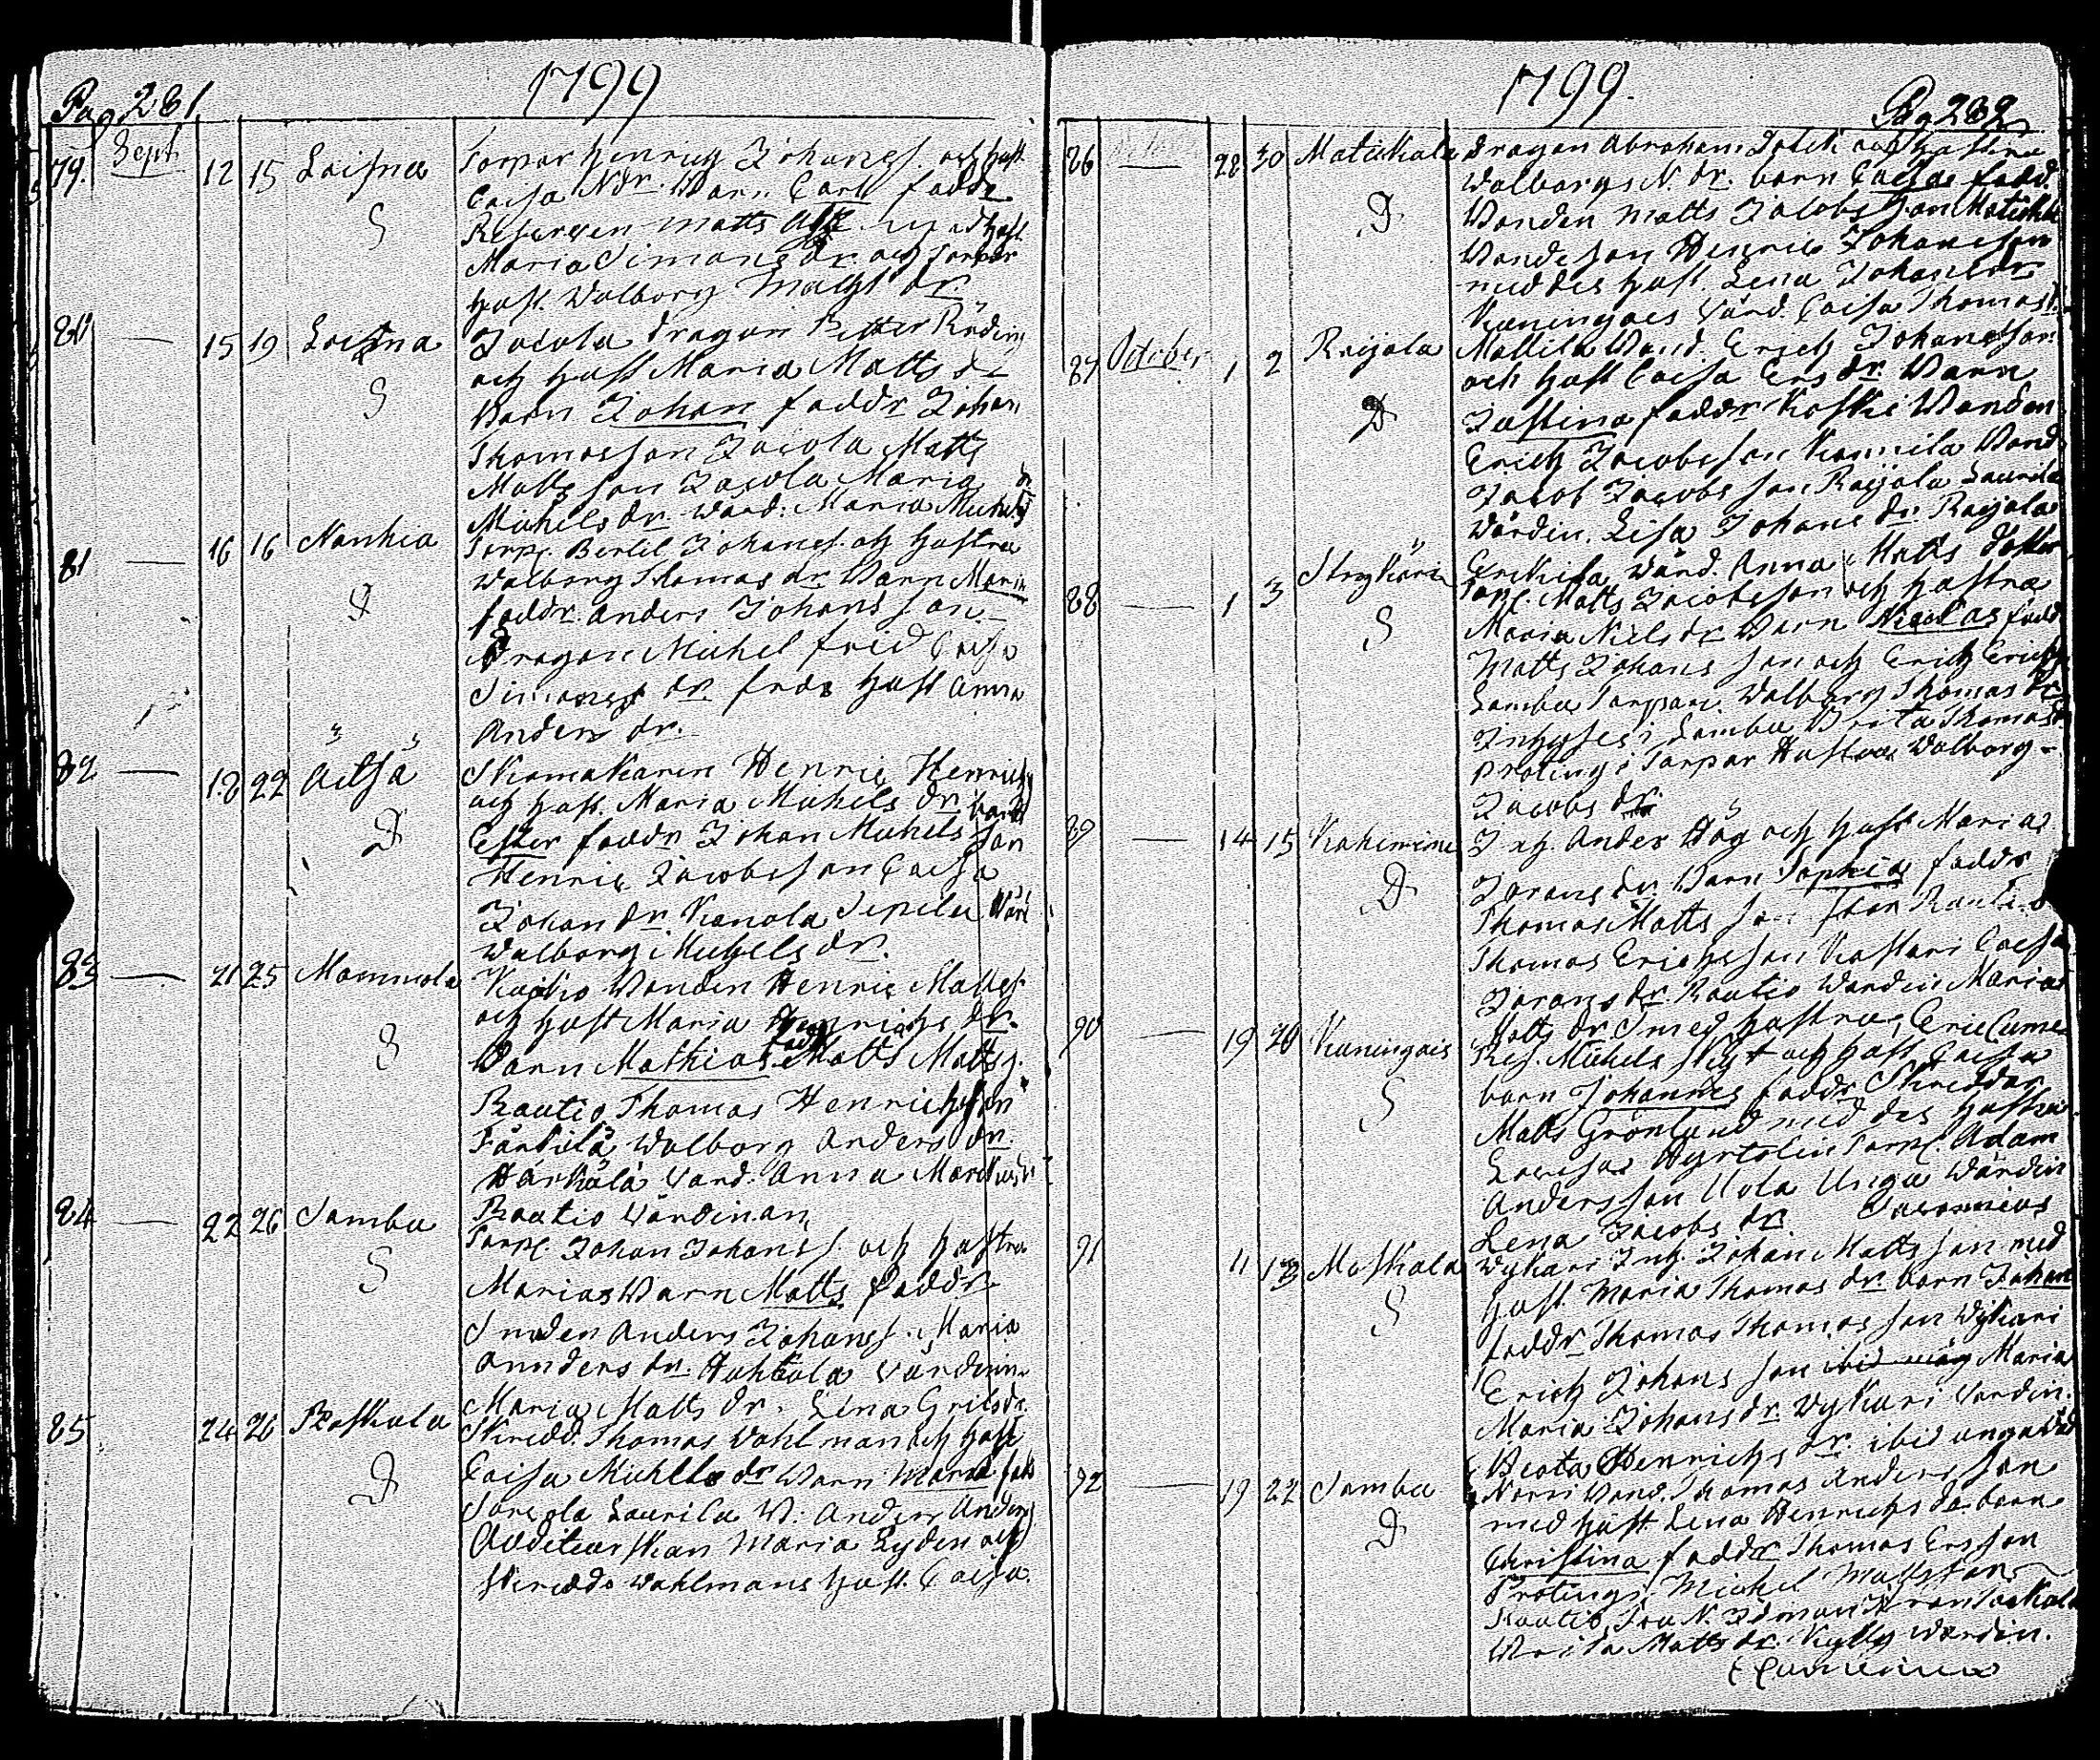 1799
Pag 281
Sept.
79. 12 15 Loisna Torpar Henrich Johanes. och hust.
S Caisa Ndr. Barn. Carl fadd
Reserven Matts hust.
Maria Simons dr. och Torpar
hust. Walborg Matts dr.
80 — 15 19 Loisna Jacola Dragon Petter Röding
och hust Maria Matts dr
S Barn Johan faddr Johan
Thomasson Jacola Matts
Matts son Jacola Maria
Michels dr. Wärd: Maria Michels
81 — 16 16 Nanhia Torp. Bertil Johanes. och hustru
Walborg Thomas dr Barn Maria
D faddr. Anders Johans son
Dragon Michel frid Caisa
Simons dr. frids hust Anna
Anders dr.
82 — 18 22 Äitsä Skomakaren Henric Henrichs
och hust. Maria Michels dr. barn
D Ester faddr Johan Michels son
Henric Jacobsson Caisa
Johan dr. Kanola Sepelu Wärd
Walborg Michels dr.
83 — 21 25 Mommola Kuotio Bonden Henric Mattss.
och hust Maria Henrichs dr.
S Barn Mathias fadd Matts Matts.
Rautio Thomas Henrichsson
Färkilä Walborg Anders dr.
Härkälä Värd. Anna Marcus dr
Rautio Värdinan
84 — 22 26 Sambu Torp. Johan Johans s. och hustru
S Maria Barn Matts faddr
Smeden Anders Johans s. Maria
Annders dr. Huhtala Värdinn.
Maria Matts dr. Lena Grils dr.
85 24 26 Raskala Skredd. Thomas Wahlman och hust
Caisa Michels dr Barn Maria fad
D Sorcola Laurila W. Anders Anders
Auditeurskan Maria Lyden och
skredd. Wahlmans hust. Caisa.
1799.
Pag 282
86 28 30 Matickala Dragon Abraham och hustru
Walborgs N. dr. barn Caisa fadd.
D Bonden Matts Jacobs son Matickala
Bondeson Henric Johansson
med des hust. Lena Johans dr
Kuningais Värd. Caisa Thomas d.
87 October 1 2 Reijola Mallila Bond. Erich Johansson
och hust Caisa Ers dr. Barn
D Justina faddr Koski Bonden
Erich Jacobsson Kannila Bond.
Jacob Jacobs son Reijola Laurila
Wärdin. Lisa Johans dr. Reijola
Erckilä Wärd. Anna Matts dotter
88 — 1 3 Strykäri Torp. Matts Jacobsson och hustru
S Maria Niels dr Barn Nicolas fadd
Matts Johans son och Erich Erichs
Sambu Torpare. Walborg Thomas dr
Inhyses i Sambu Brita Thomas d
Protings Torpar Hustru Walborg
Jacobs dr.
89 — 14 15 Kahinine Inh. Anders Hög och hust Maria
D Jörans dr. Barn Sophia faddr
Thomas Matts son Rautio
Thomas Erichsson Kastari Caisa
Jorans dr. Rautio Wärdin Maria
Matts dr. Smeds hustru
90 — 19 20 Kuningais Res. Michels och hust Caisa
S barn Johannes faddr Skreddar
Matts Grönlund med des hustru
Lovisa Hyrtolin Torp. Adam
Andersson Uola Unga Värdin
Lena Jacobs dr.
91 11 13 Moskala Wykari Inh. Johan Matts son med
hust. Maria Thomas dr. barn Johan
S faddr Thomas Thomas son Wykari
Erich Johans son ibid måg Maria
Maria Johans dr Wykari Värdin.
Beata Henrichs dr. ibid unga Värd
92 — 19 22 Sambu Norri Bond. Thomas Anders son
med hust Lena Henrichs dr barn
D Christina faddr Thomas Ersson
Protings Michel Matts son
Rautio, Fru N. Idman från
Brita Matts dr. Kylly Wärdin.